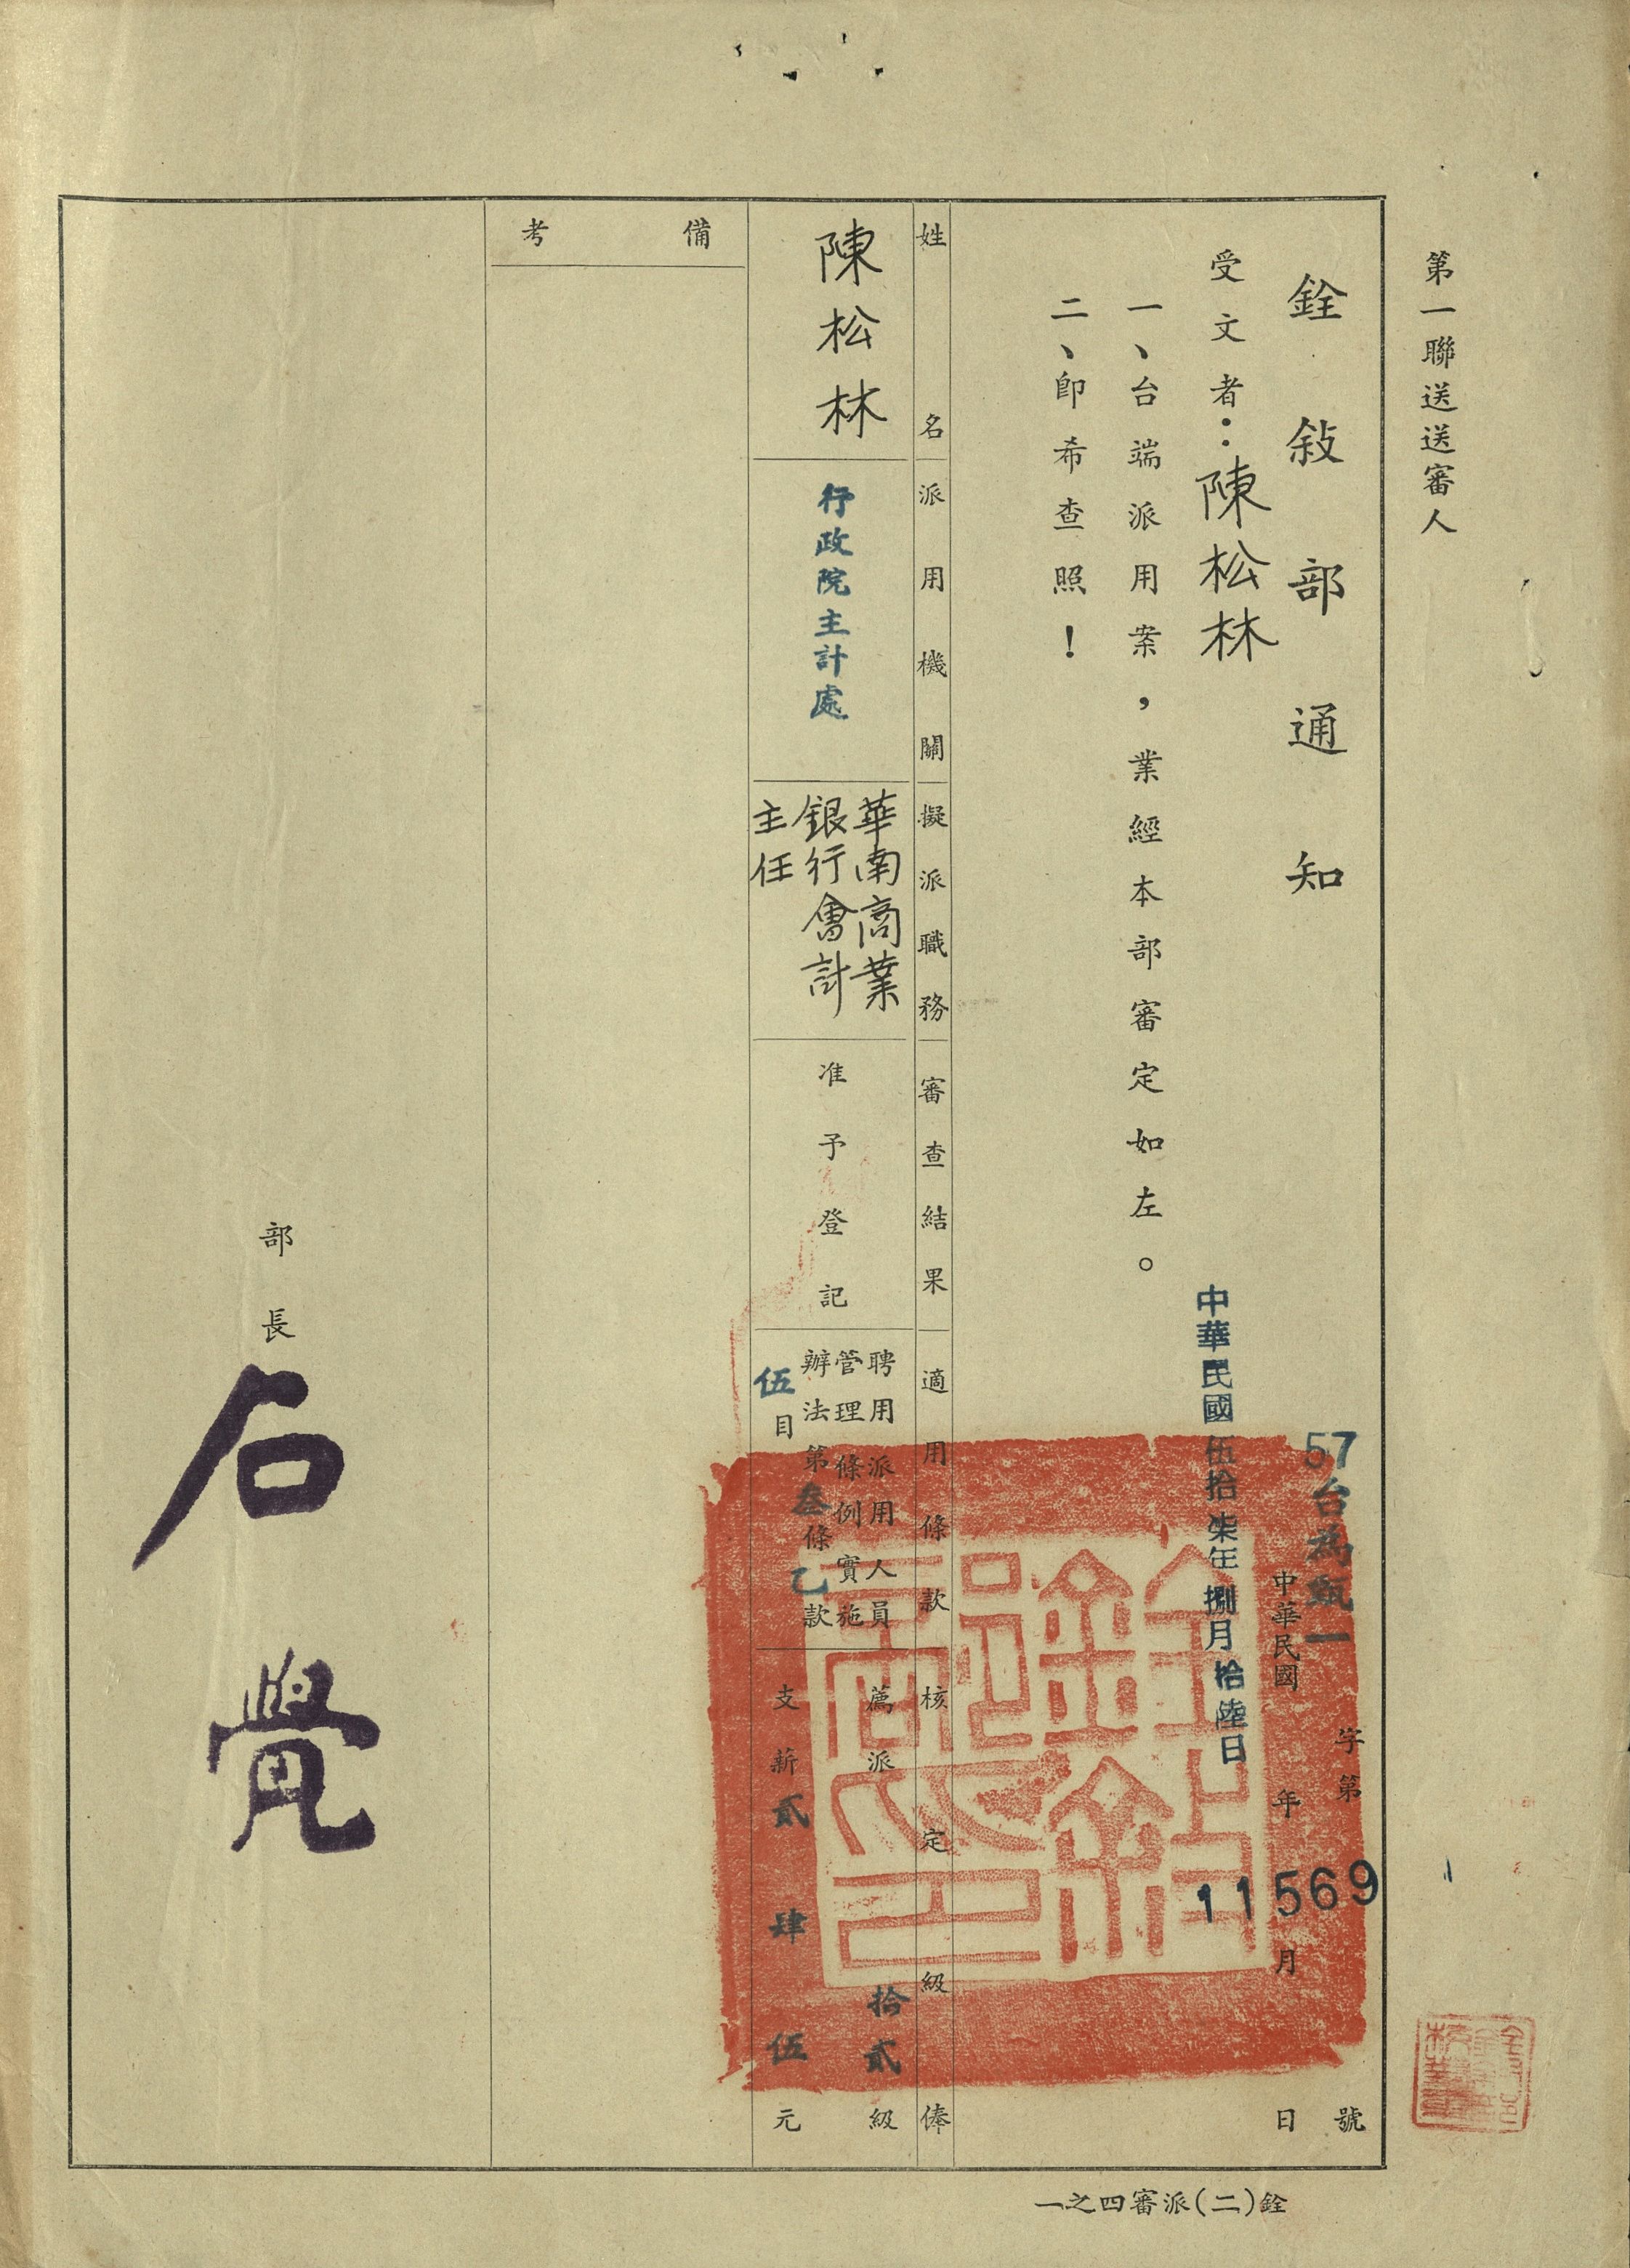 第一聯送送審人
銓敍部通知
57台為甄一字第11569號
中華民國 年 月 日
中華民國伍拾柒年捌月拾陸日
受文者：陳松林
一、台端派用案，業經本部審定如左。
二、卽希查照！
姓名
派用機關
擬派職務
審查結果
適用條款
核定級俸
陳松林
行政院主計處
華南商業
銀行會計
主任
准予登記
聘用派用人員
管理條例實施
辦法第叁條乙款
伍目
薦派拾貳級
支薪貳肆伍元
備考
部長石覺
銓(二)派審四之一